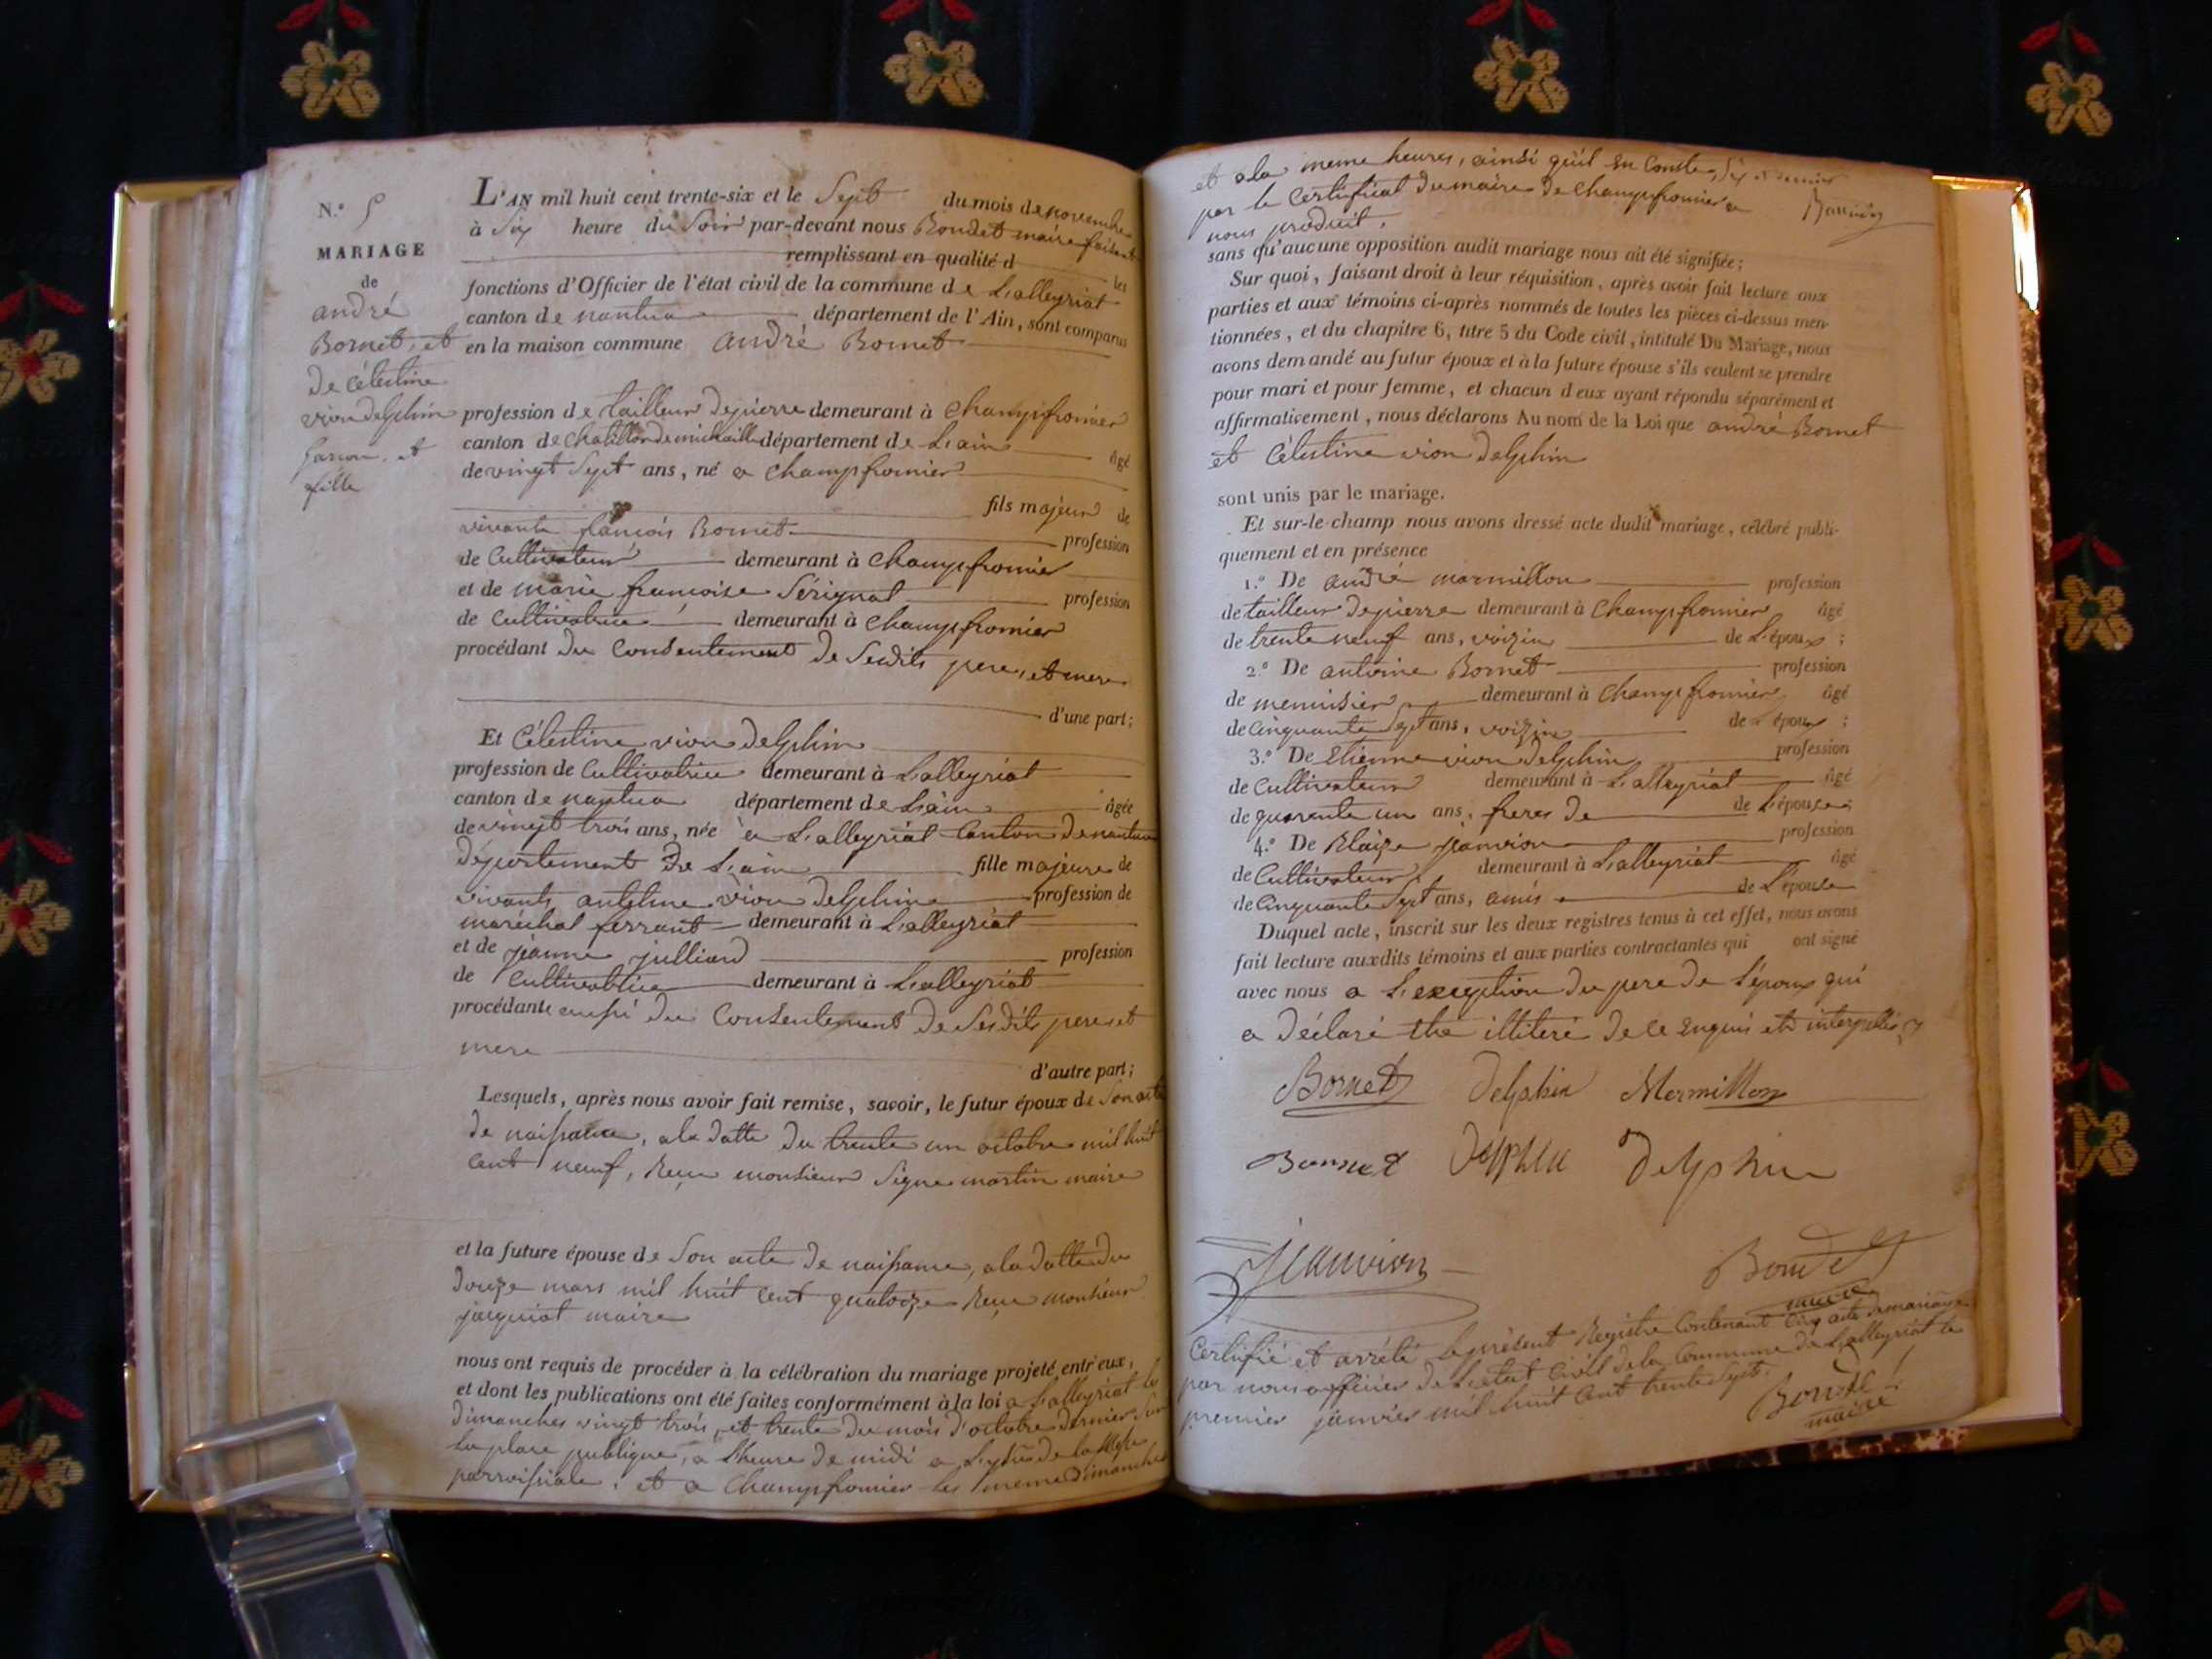 N.º 5
MARIAGE
de
andré
Bornet, et
de célestine
vion delphin
garson, et
fille
L'AN mil huit cent trente-six et le Sept du mois de novembre
à Six heure du Soir par-devant nous Bondet maire faisant
remplissant en qualité d les
fonctions d'Officier de l'état civil de la commune de Lalleyriat
canton de nantua département de l'Ain, sont comparus
en la maison commune andré Bornet
profession de tailleur depierre demeurant à Champfromier
canton de Chatillon de michaille département de L'ain âgé
de vingt Sept ans, né a Champfromier
fils majeur de
vivants françois Bornet profession
de Cultivateur demeurant à Champfromier
et de marie françoise Sérignat profession
de Cultivatrice demeurant à Champfromier
procédant du Consentement de Sesdits pere, et mere
d'une part;
Et Célestine vion delphin
profession de Cultivatrice demeurant à Lalleyriat
canton de nantua département de L'ain âgée
de vingt trois ans, née a Lalleyriat Canton de nantua
département de L'ain fille majeure de
vivants antelme vion delphin profession de
maréchal ferrant demeurant à Lalleyriat
et de jeanne julliard profession
de Cultivatrice demeurant à Lalleyriat
procédante aussi du Consentement de Sesdits pere et
mere
d'autre part;
Lesquels, après nous avoir fait remise, savoir, le futur époux de Son acte
de naissance, ala datte du trente un octobre mil huit
cent neuf, Reçu monsieur Signe martin maire
et la future épouse de Son acte de naissance, ala datte du
douze mars mil huit cent quatorze Reçu monsieur
jacquiot maire
nous ont requis de procéder à la célébration du mariage projeté entr'eux,
et dont les publications ont été faites conformément à la loi a Lalleyriat les
dimanches vingt trois, et trente du mois d'octobre dernier Sur
la place publique, a Lheure de midi a de la Messe
parroissiale, et a Champfromier les meme dimanches
et ala meme heures, ainsi qu'il en Conste,
par le Certificat du maire de Champfromier a
nous produit,
sans qu'aucune opposition audit mariage nous ait été signifiée;
Sur quoi, faisant droit à leur réquisition, après avoir fait lecture aux
parties et aux témoins ci-après nommés de toutes les pièces ci-dessus men-
tionnées, et du chapitre 6, titre 5 du Code civil, intitulé Du Mariage, nous
avons demandé au futur époux et à la future épouse s'ils veulent se prendre
pour mari et pour femme, et chacun d eux ayant répondu séparément et
affirmativement, nous déclarons Au nom de la Loi que andré Bornet
et Célestine vion delphin
sont unis par le mariage.
Et sur-le-champ nous avons dressé acte dudit mariage, célébré publi-
quement et en présence
1.º De andré marmillon profession
de tailleur depierre demeurant à Champfromier âgé
de trente neuf ans, voizin de L'époux ;
2.º De antoine Bornet profession
de menuisier demeurant à Champfromier âgé
de Cinquante Sept ans, voizin de L'époux ;
3.º De Etienne vion delphin profession
de Cultivateur demeurant à Lalleyriat âgé
de quarante un ans, freres de de L'épouse;
4.º De Blaize jeanvion profession
de Cultivateur demeurant à Lalleyriat âgé
de Cinquante Sept ans, amis de L'épouse
Duquel acte, inscrit sur les deux registres tenus à cet effet, nous avons
fait lecture auxdits témoins et aux parties contractantes qui ont signé
avec nous a L'exception du pere de L'époux qui
a déclaré être illiteré de ce enquis et interpellé
Bornet Delphin Mermillon
Bornet Delphin Delphin
Jeanvion
Bondet
maire
Certifié et arrêté le présent Registre Contenant Cinq acte demariage
par nous officier de L'etat Civil de la Commune de Lalleyriat le
premier janvier mil huit cent trente Sept.
Bondet
maire